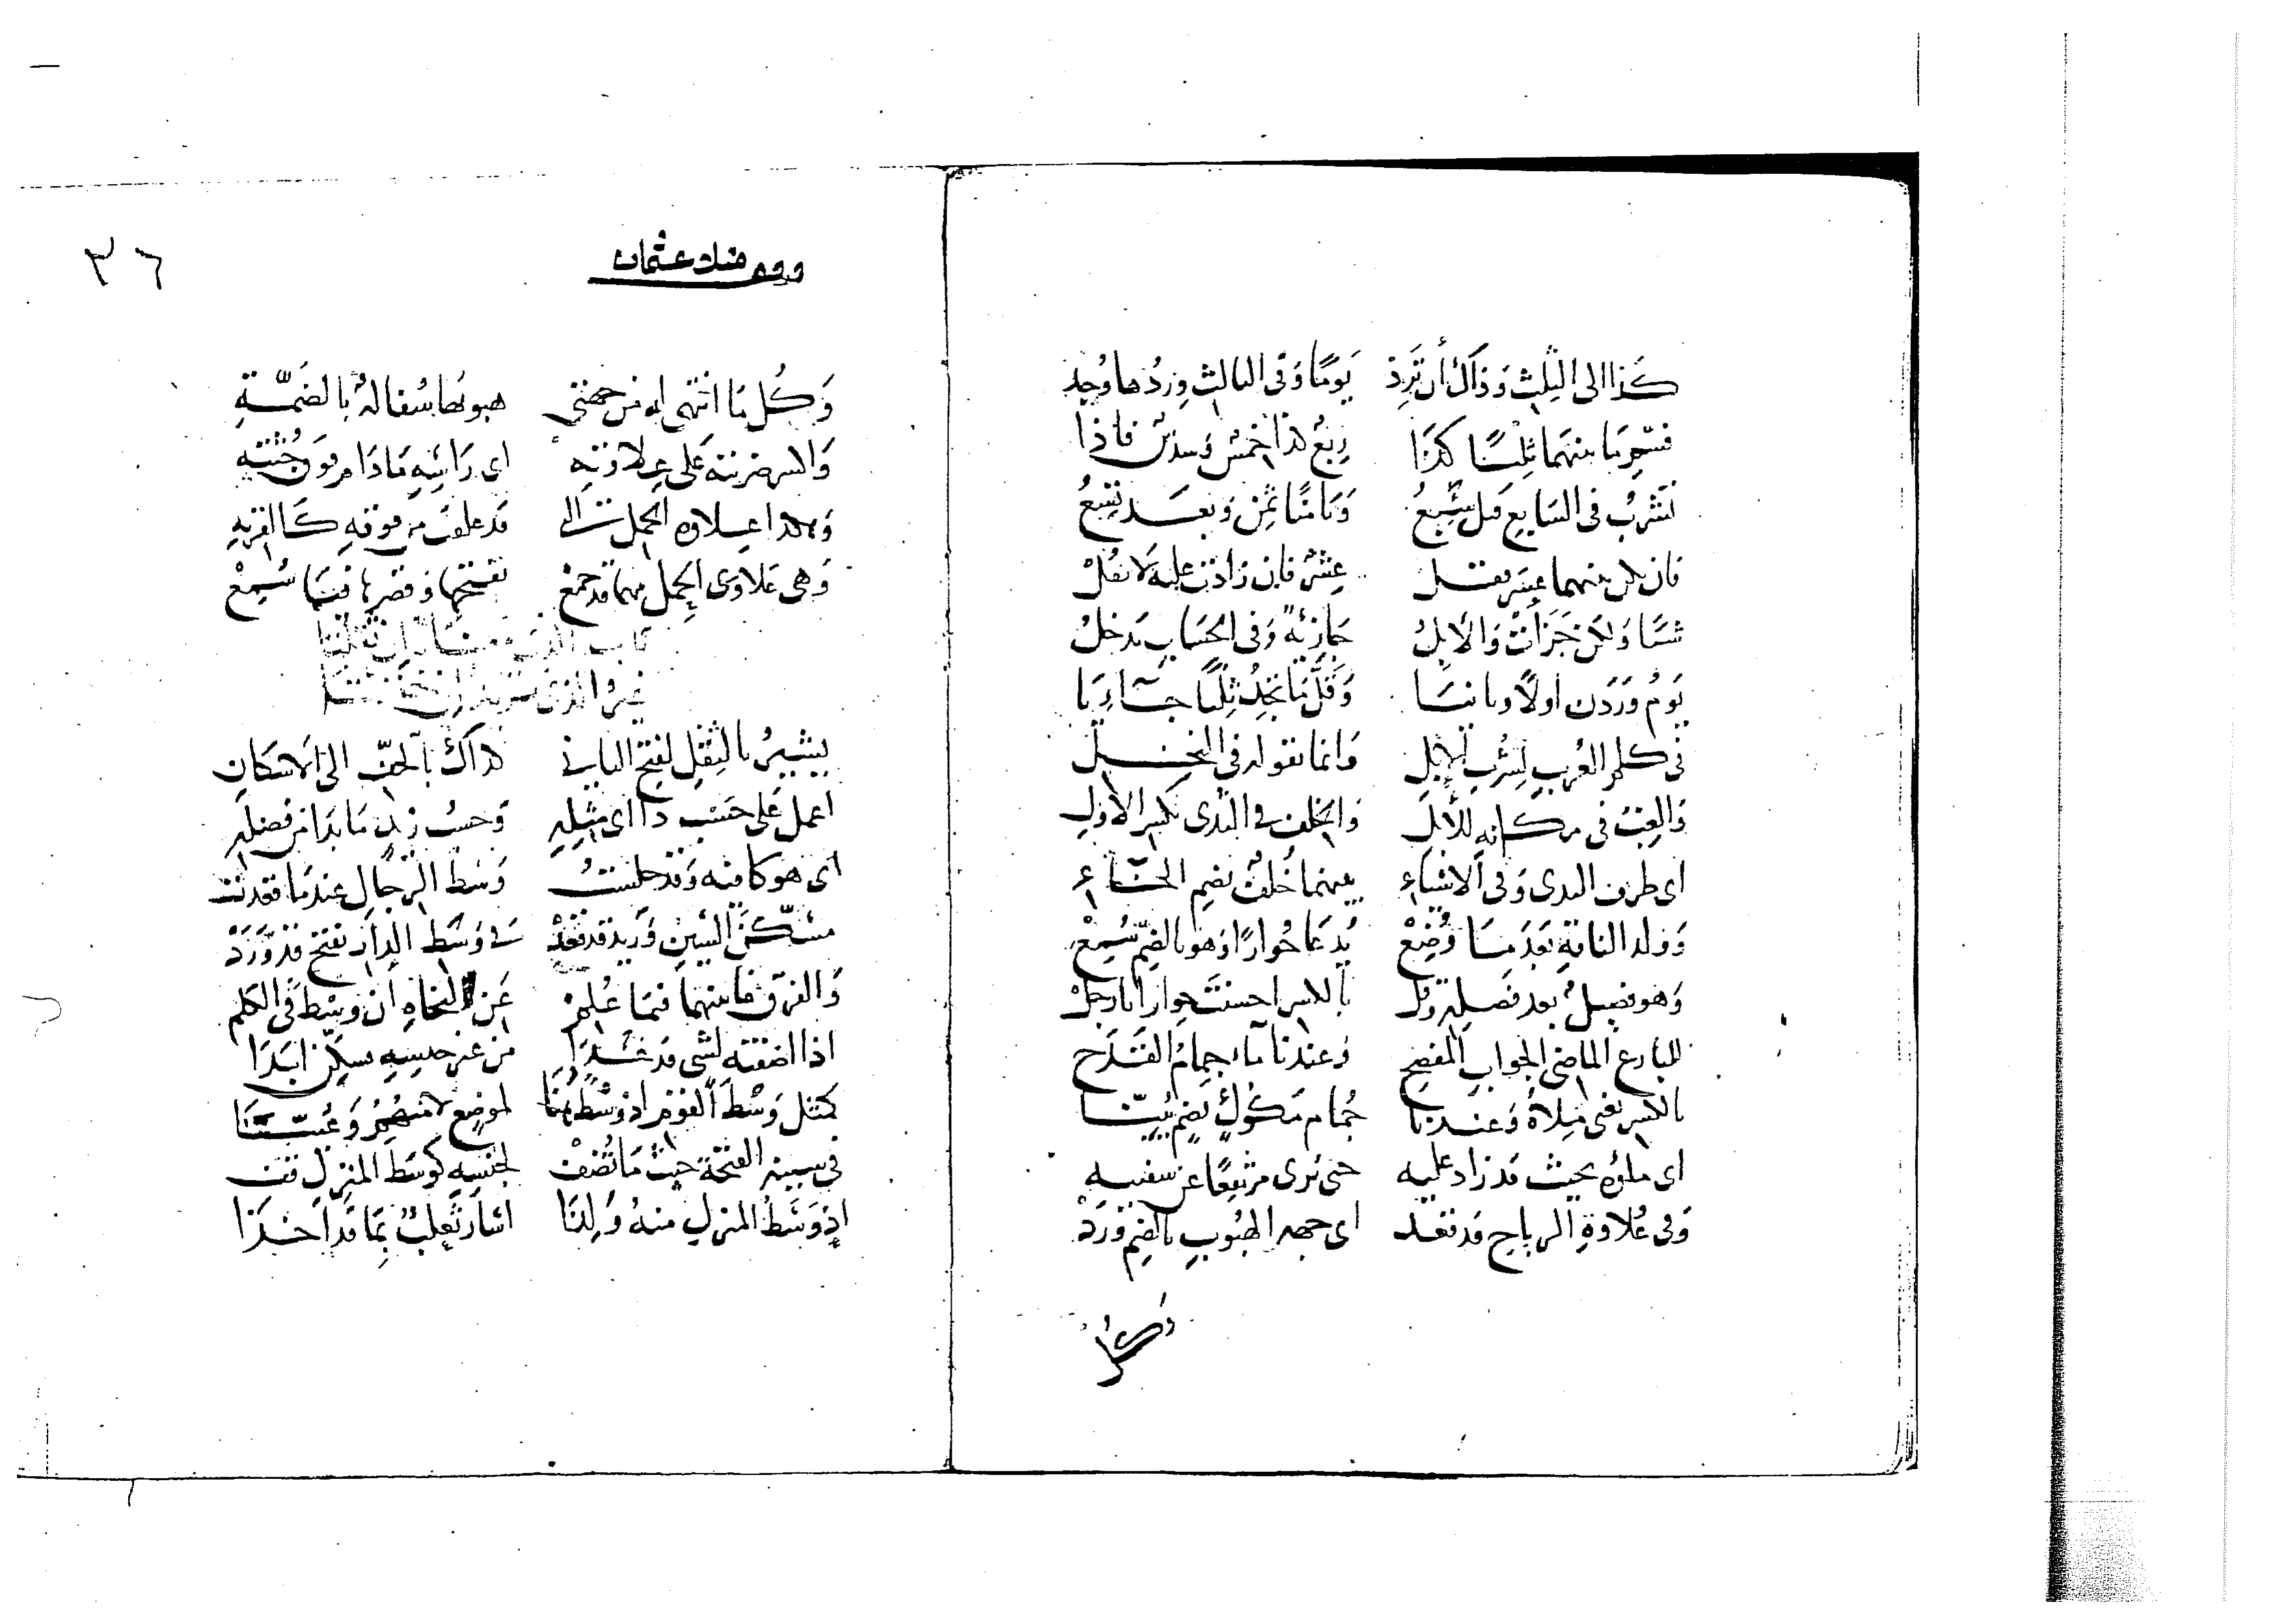 كذا الى الثلث وذاك أن ترد يوما وفى الثالث وردها وجد
فسم ما بينهما ثلثا كذا ربع كذا خمس وسدس فاذا
تشرب فى السابع قل سبع وثامنا ثمن وبعد تسع
فان يكن بينهما عشر فقل عشر فان زادت عليه لا تقل
شيا ولكن جزأت والابل جازئة وفى الحساب يدخل
يوم وردن اولا وثانيا وقل ما تجد ثلثا جائيا
فى كلم العرب لشرب الابل وانما نقوله فى النخل
والغب فى مكانه للأبل والخلف فى الثدى بكسر الاول
اى طرف الثدى وفى الاشياء بينهما خلف بضم الخاء
وولد الناقة بعد ما وضع يدعا حوارا وهو بالضم سمع
وهو فصيل بعد فصله وقل بالكسر احسنت حوارا يا رجل
للبارع الماضى الجواب المفصح وعندنا ماء جمام القدح
بالكسر يعنى ملأه وعندنا جمام مكوك بضم بينا
اى ملؤه بحيث قد زاد عليه حتى ترى مرتفعا عن
وفى علاوة الرياح قد فقعد اى جهة الهبوب بالضم ورد
وكل
عثمان
٣٦
وكل ما انتهى اليه من جهتى هبوبها سفالة بالضمة
والكسر ضربته على علاوته اى رأسه ما دام فوق جثته
وهكذا علاوة الحمل قد علقت من فوقه كالقربه
وهى علاوى الحمل مهما قد جمع بفتحها وقصرها فيما سمع
يشير بالثقل لفتح الثانى كذاك بالخف الى الاسكان
اعمل على حسب ذا اى مثله وحسب زيد ما بدا من فضله
اى هو كافيه وقد جلست وسط الرجال عندما قعدت
مسكن السين وزيد قد قعد فى وسط الدار بفتح قد ورد
والفرق ما بينهما فيما علم عن النحاة ان وسط فى الكلم
اذا اضفته لشى قد غدا من غير جنسه سكن ابدا
كمثل وسط القوم اذ وسط هنا لموضع لا منهم وعينا
فى سينه الفتحة حيث ما تضف لجنسه كوسط المنزل قف
اذ وسط المنزل منه ولذا اشار ثعلب بما قد اخذا